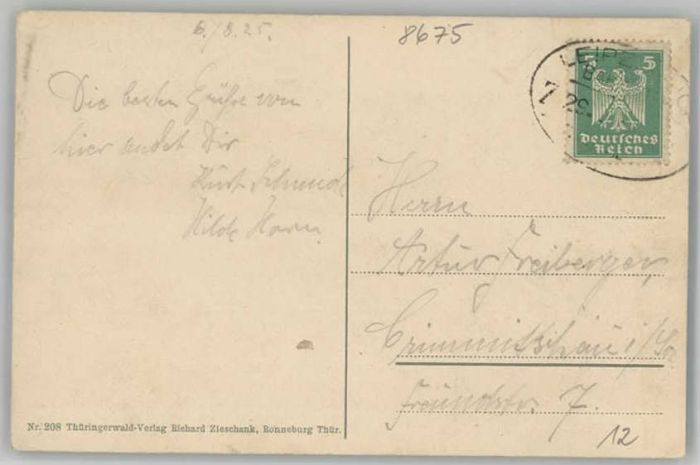 6./8.25.
8675
Die besten Grüße von
hier sendet Dir
Kurt Schmidt
Hilde Horn
LEIPZ
5 5
Z
Deutsches
Reich
Herrn
Artur Freiberger,
Crimmitschau i/Sa
7.
12
Nr. 208 Thüringerwald-Verlag Richard Zieschank, Ronneburg Thür.